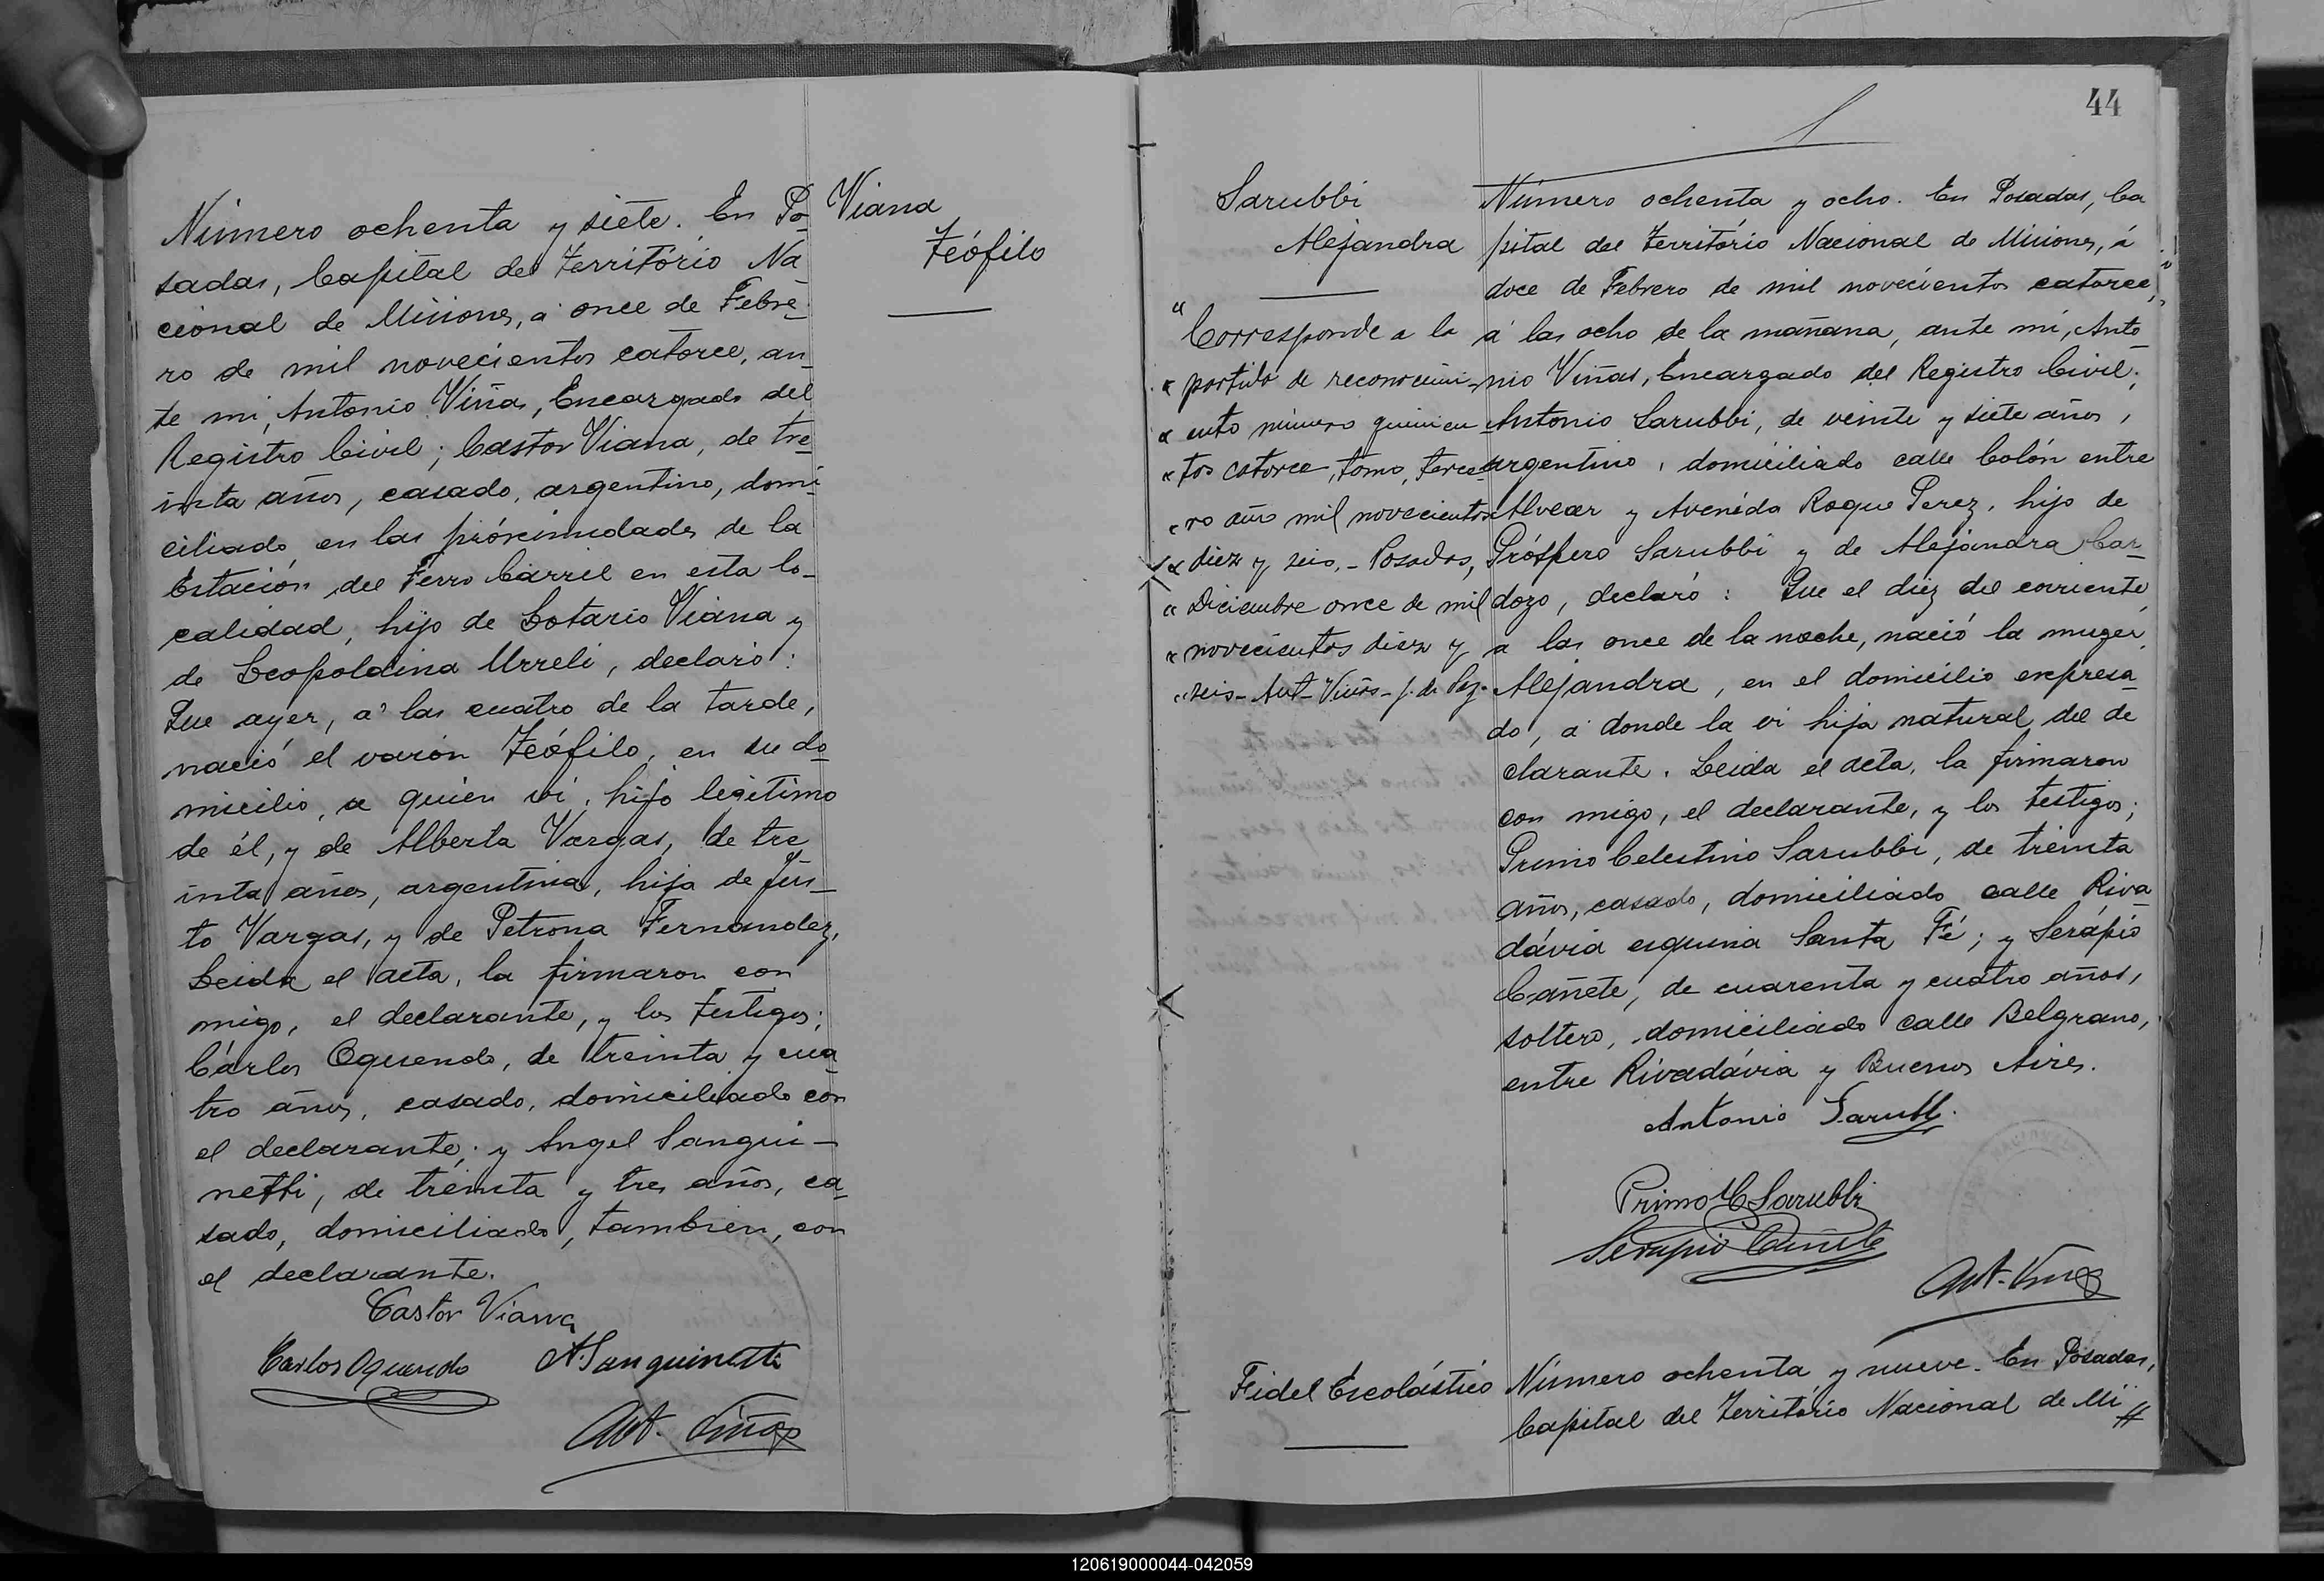 Viana
Teófilo
Número ochenta y siete. En Po-
sadas, Capital del Territorio Na
cional de Misiones, á once de Febre-
ro de mil novecientos catorce, an-
te mi, Antonio Viñas, Encargado del
Registro Civil; Castor Viana, de tre-
inta años, casado, argentino, domi-
ciliado en las próximidades de la
Estación del Ferro Cárril en esta lo-
calidad, hijo de Lotario Viana y
de Leopoldina Urreli, declaró:
Que ayer, á las cuatro de la tarde,
nació el varón Teófilo, en su do-
micilio, a quien vi, hijo legítimo
de él, y de Alberta Vargas, de tre
inta años, argentina, hija de Jus-
to Vargas, y de Petrona Fernandez,
Leida el acta, la firmaron con
migo, el declarante, y los testigos;
Cárlos Oquendo, de treinta y cua-
tro años, casado, domiciliado con
el declarante; y Angel Sangui-
netti, de treinta y tres años, ca-
sado, domiciliado, tambien, con
el declarante.
Castor Viana
Carlos Oquendo A. Sanguinetti
Ant. Viñas
44
Sarubbi
Alejandra
"Corresponde a la
" partida de reconocimi-
" ento número quinien-
" tos catorce, tomo, terce-
" ro año mil novecientos
" diez y seis.- Posadas,
" Diciembre once de mil
" novecientos diez y
" seis- Ant- Viñas- J. de Paz.
Número ochenta y ocho. En Posadas, Ca
pital del Territorio Nacional de Misiones, á
doce de Febrero de mil novecientos catorce,
á las ocho de la mañana, ante mi, Anto-
nio Viñas, Encargado del Registro Civil;
Antonio Sarubbi, de veinte y siete años,
argentino, domiciliado calle Colón entre
Alvear y Avenida Roque Perez, hijo de
Próspero Sarubbi y de Alejandra Car-
dozo, declaró: Que el diez del corriente
a las once de la noche, nació la muger
Alejandra, en el domicilio expresa-
do, á donde la vi hija natural del de
clarante. Leida el acta, la firmaron
con migo, el declarante, y los testigos;
Primo Celestino Sarubbi, de treinta
años, casado, domiciliado calle Riva-
dávia esquina Santa Fé; y Serápio
Cañete, de cuarenta y cuatro años,
soltero, domiciliado calle Belgrano,
entre Rivadávia y Buenos Aires.
Antonio Sarubbi.
Primo C Sarubbi
Serapio Cañete
Ant. Viñas
Fidel Escolástico
Número ochenta y nueve. En Posadas,
Capital del Territorio Nacional de Mi
120619000044-042059